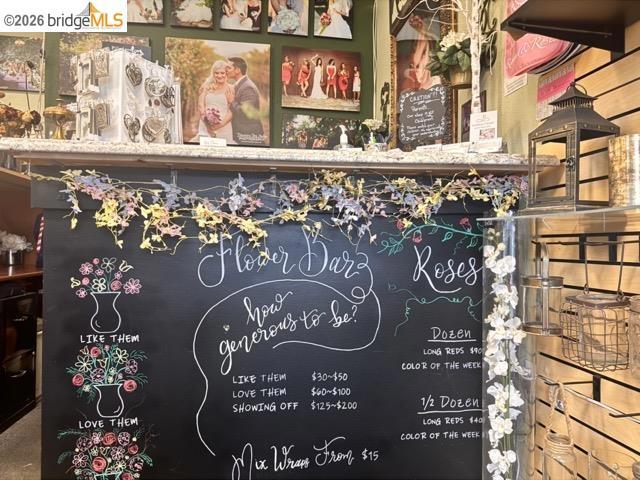 ©2026 bridgeMLS
bridgeMLS
CAUTION!
Flower Bar
how
generous to be?
Roses
LIKE THEM
LOVE THEM
LIKE THEM $30~$50
LOVE THEM $60~$100
SHOWING OFF $125~$200
Mix Wraps From $15
Dozen
LONG REDS
COLOR OF THE WEEK
1/2 Dozen
LONG REDS $40
COLOR OF THE WEEK